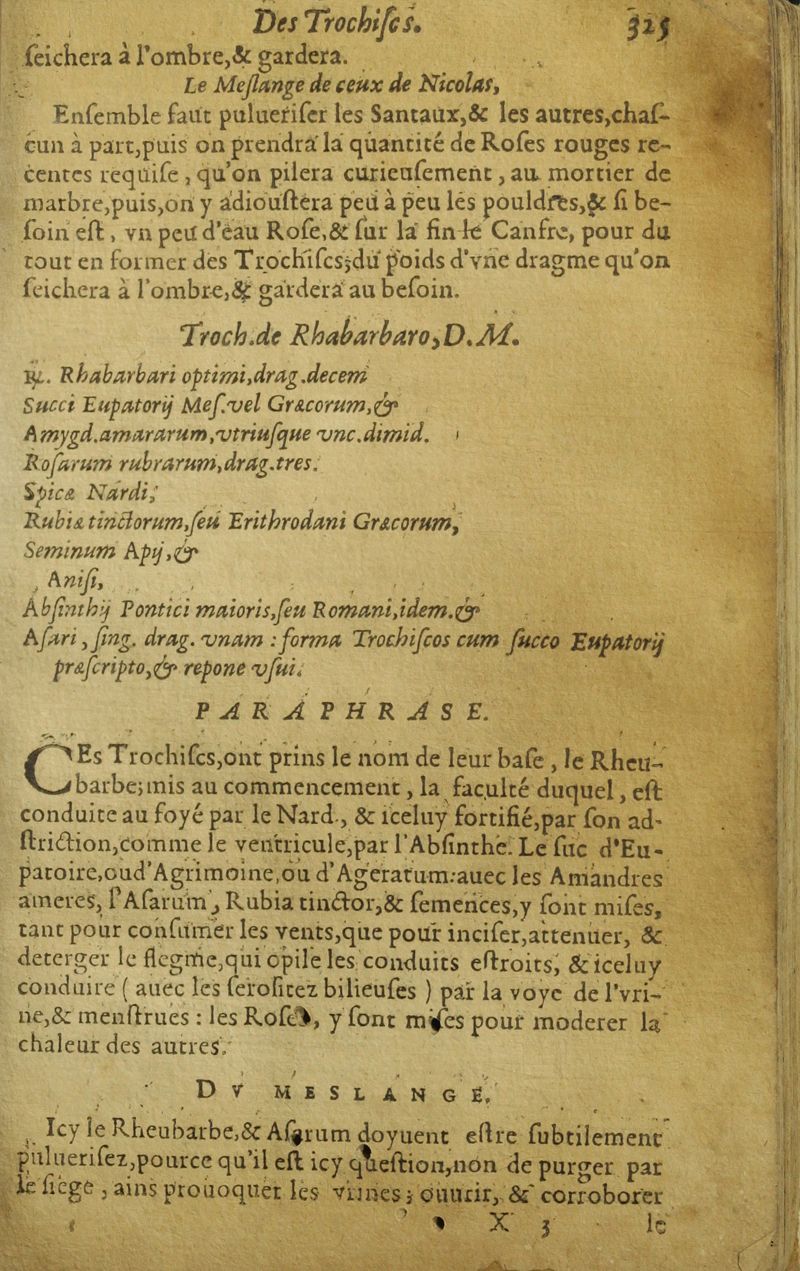 Des Trochiſcs. 325
ſeichera à l'ombre,& gardera.
Le Meſlange de ceux de Nicolas,
Enſemble faut pulueriſer les Santaux,& les autres,chaſ-
cun à part,puis on prendra la quantité de Roſes rouges re-
centes requiſe , qu'on pilera curieuſement , au mortier de
marbre,puis,on y adiouſtera peu à peu les pouldres,& ſi be-
ſoin eſt , vn peu d'eau Roſe,& ſur la fin le Canfre, pour du
tout en former des Trochiſcs;du poids d'vne dragme qu'on
ſeichera à l'ombre,& gardera au beſoin.
Troch.de Rhabarbaro,D.M.
℞. Rhabarbari optimi,drag.decem
Succi Eupatorij Meſ.vel Græcorum,&
Amygd.amararum,vtriuſque vnc.dimid.
Roſarum rubrarum,drag.tres.
Spicæ Nardi,
Rubiæ tinctorum,ſeu Erithrodani Græcorum,
Seminum Apij,&
Aniſi,
Abſinthij Pontici maioris,ſeu Romani,idem.&
Aſari , ſing. drag. vnam : forma Trochiſcos cum ſucco Eupatorij
præſcripto,& repone vſui.
PARAPHRASE.
CEs Trochiſcs,ont prins le nom de leur baſe , le Rheu-
barbe;mis au commencement , la faculté duquel , eſt
conduite au foyé par le Nard., & iceluy fortifié,par ſon ad-
ſtriction,comme le ventricule,par l'Abſinthe. Le ſuc d'Eu-
patoire,oud'Agrimoine,ou d'Ageratum:auec les Amandres
ameres, l'Aſarum , Rubia tinctor,& ſemences,y ſont miſes,
tant pour conſumer les vents,que pour inciſer,attenuer, &
deterger le flegme,qui opile les conduits eſtroits, & iceluy
conduire ( auec les ſeroſitez bilieuſes ) par la voye de l'vri-
ne,& menſtrues : les Roſes, y ſont miſes pour moderer la
chaleur des autres.
DV MESLANGE.
Icy le Rheubarbe,& Aſarum doyuent eſtre ſubtilement
puluerifez,pource qu'il eſt icy queſtion,non de purger par
le ſiege , ains prouoquer les vrines ; ouurir, & corroborer
X 3 le